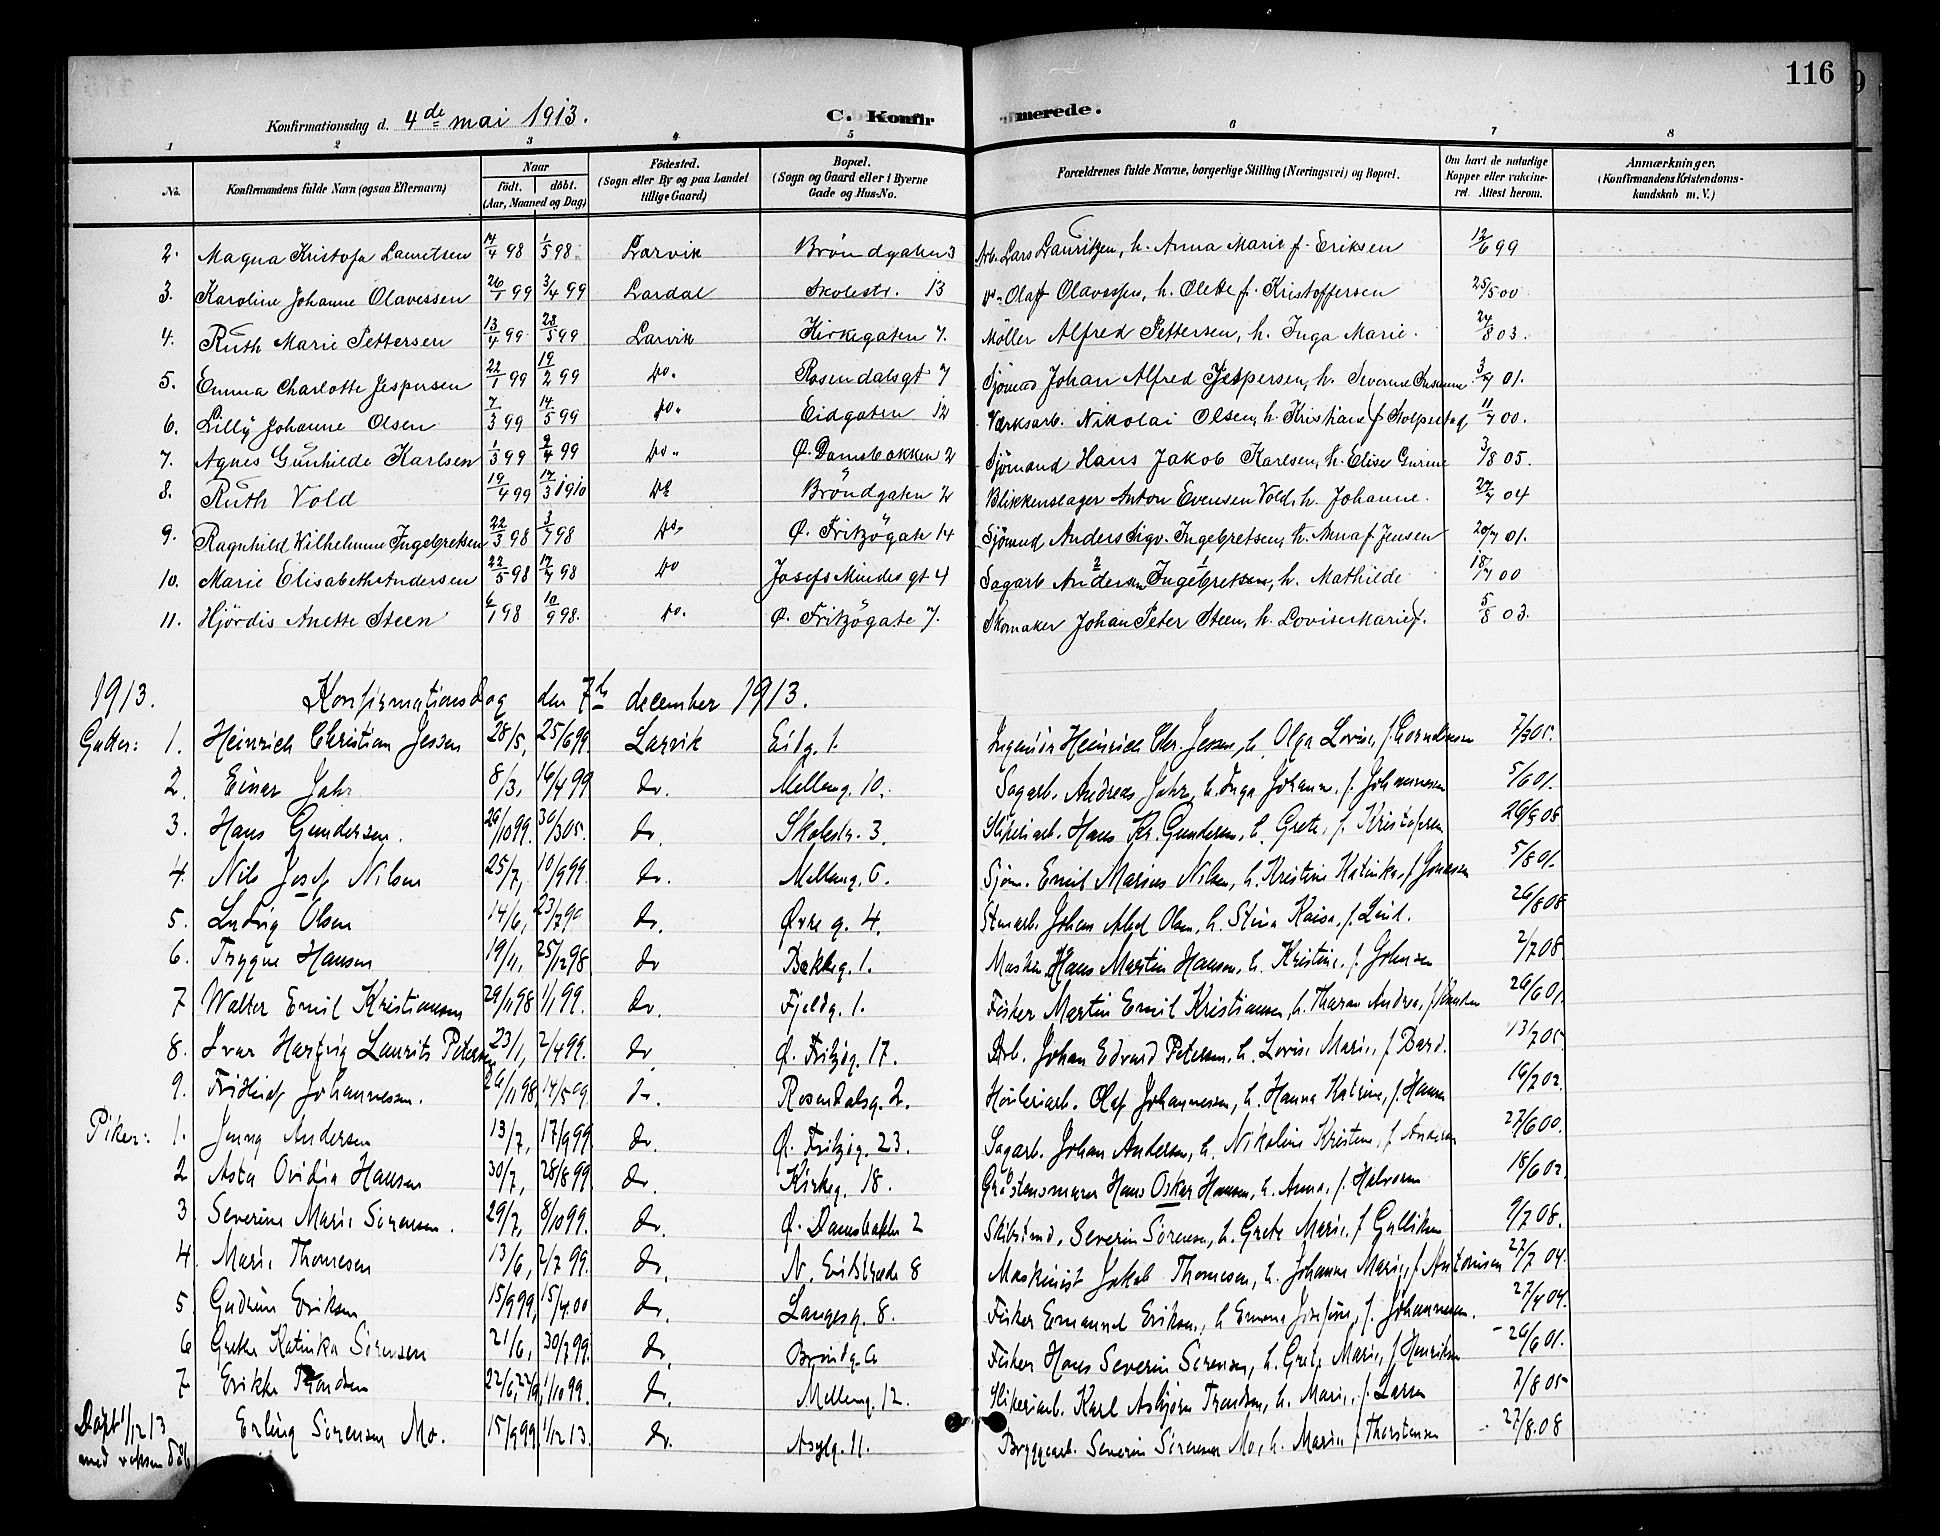 116
Konfirmationsdag d. 4de mai 1913. C. Konfirmerede.
1 2 3 4 5 6 7 8
No. Konfirmandens fulde Navn (ogsaa Efternavn) Naar födt. döbt. (Aar, Maaned og Dag) Födested. (Sogn eller By og paa Landet tillige Gaard) Bopæl. (Sogn og Gaard eller i Byerne Gade og Hus-No. Forældrenes fulde Navne, borgerlige Stilling (Næringsvei) og Bopæl. Om havt de naturlige Kopper eller vaccineret. Attest herom. Anmærkninger. (Konfirmandens Kristendomskundskab m. V.)
2. Magna Kristofa Lauritsen 14/4 98 1/5 98. Larvik Bröndgaten 3 Arb. Lars Lauritzen, h. Anna Marie f. Eriksen 12/6 99
3. Karoline Johanne Olavessen 26/1 99 3/4 99 Lardal Skolestr. 13 Do. Olaf Olavessen, h. Olette f. Kristoffersen 25/5 00
4. Ruth Marie Pettersen 13/4 99 28/5 99 Larvik Kirkegaten 7. Möller Alfred Pettersen, h. Inga Marie. 24/8 03.
5. Emma Charlotte Jespersen 22/1 99 19/2 99 Do. Rosendalsgt 7 Sjömand Johan Alfred Jespersen, h. Severine 3/7 01.
6. Lilly Johanne Olsen 7/3 99 14/5 99 Do. Eidgaten 12 Værksarb. Nikolai Olsen, h. Kristiane f. Stolpestad 11/7 00.
7. Agnes Gunhilde Karlsen 1/3 99 2/4 99 Do. Ø. Damsbakken 2 Sjömand Hans Jakob Karlsen, h. Elise Gurine 3/8 05.
8. Ruth Vold 19/4 99 17/3 1910 Do Bröndgaten 2 Blikkenslager Anton Evensen Vold, h. Johanne. 27/7 04
9. Ragnhild Wilhelmine Ingebretsen 22/3 98 3/7 98 Do. Ø. Fritzögate 14 Sjömand Anders Sigv. Ingebretsen, h. Anna f. Jensen 20/7 01.
10. Marie Elisabeth Andersen 22/5 98 17/7 98 Do Josefs Mindes gt 4 Sagarb Andersen Ingebretsen, h. Mathilde 18/7 00
11. Hjördis Anette Steen 6/1 98 10/9 98. Do. Ø. Fritzögate 7. Skomaker Johan Peter Steen, h. Lovise Marie f. 5/8 03.
1913. Konfirmationsdag den 7de december 1913.
Gutter: 1. Heinrich Christian Jessen 28/5, 25/6 99. Larvik Eidg. 1. Ingeniör Heinrich Chr. Jessen, h. Olga Lovise, f. 7/9 05.
2. Einar Jahr 8/3, 16/4 99 Do. Melleng. 10. Sagarb. Andreas Jahr, h. Inga Johanne, f. Johannesen 5/6 01.
3. Hans Gundersen. 29/10 99. 30/3 05. Do Skolestr. 3. Sliperiarb. Hans Kr. Gundersen, h. Grete, f. Kristofersen 26/9 08.
4. Nils Josef Nilsen 25/7, 10/9 99. Do. Melleng. 6. Sjöm. Emil Marius Nilsen, h. Kristine Katinka, f. Jonassen 5/8 01.
5. Ludvig Olsen 14/6, 23/7 99 Do. Øvre g. 4. Stenarb. Johan Olsen, h. Stina Kaisa, f. Lind. 26/8 08
6. Trygve Hansen 19/11, 25/12 98 Do Bakkeg. 1. Maskin. Hans Martin Hansen, h. Kristine, f. Johnsen 2/7 08
7 Walter Emil Kristiansen 29/11 98 1/1 99. Do. Fjeldg. 1. Fisker Martin Emil Kristiansen, h. Andrea, f. 26/6 01.
8. Ivar Hartvig Laurits Petersen 23/1, 2/4 99. Do Ø. Fritzög. 17. Arb. Johan Edvard Petersen, h. Lovise Marie, f. Bard. 13/7 05.
9. Fridtjof Johannessen. 26/11 98, 14/5 99. Do. Rosendalsg. 2. Hövleriarb. Olaf Johannessen, h. Hanna Katrine, f. Hansen 16/7 02.
Piker: 1. Jenny Andersen 13/7, 17/9 99 Do. Ø. Fritzög. 23. Sagarb. Johan Andersen, h. Nikoline Kristine, f. Andersen 27/6 00.
2 Asta Ovidia Hansen 30/7, 28/8 99 Do. Kirkeg. 18. Gråstensmurer Hans Oskar Hansen, h. Anna, f. Halvorsen 18/6 02.
3 Severine Marie Sörensen. 29/7, 8/10 99. Do. Ø. Damsbakken 2 Skibstmd. Severin Sörensen, h. Grete Marie, f. Gulliksen 9/7 08.
4. Marie Thomesen 13/6, 2/7 99. Do. N. Eidstræde 8 Maskinist Jakob Thomesen, h. Johanne Marie, f. Antonisen 27/7 04.
5 Gudrun Eriksen 15/9 99, 15/4 00 Do. Langesg. 8. Fisker Emanuel Eriksen, h Emma Josefine, f. Johannesen. 27/7 04.
6 Grethe Katinka Sörensen 21/6, 30/7 99. Do. Bröndg. 6 Fisker Hans Severin Sörensen, h. Grete Marie, f. Henriksen 26/6 01.
7 Erikke Trondsen 22/6, 1/10 99. Do. Melleng. 12. Slikeriarb. Karl Asbjörn Trondsen, h. Marie, f. Larsen 7/8 05
Döpt 1/12 13 med voksen dåb Erling Sörensen Mo. 15/9 99, 1/12 13. Do. Asylg. 11. Bryggearb. Severin Sörensen Mo, h. Marie f Thorstensen 27/8 08